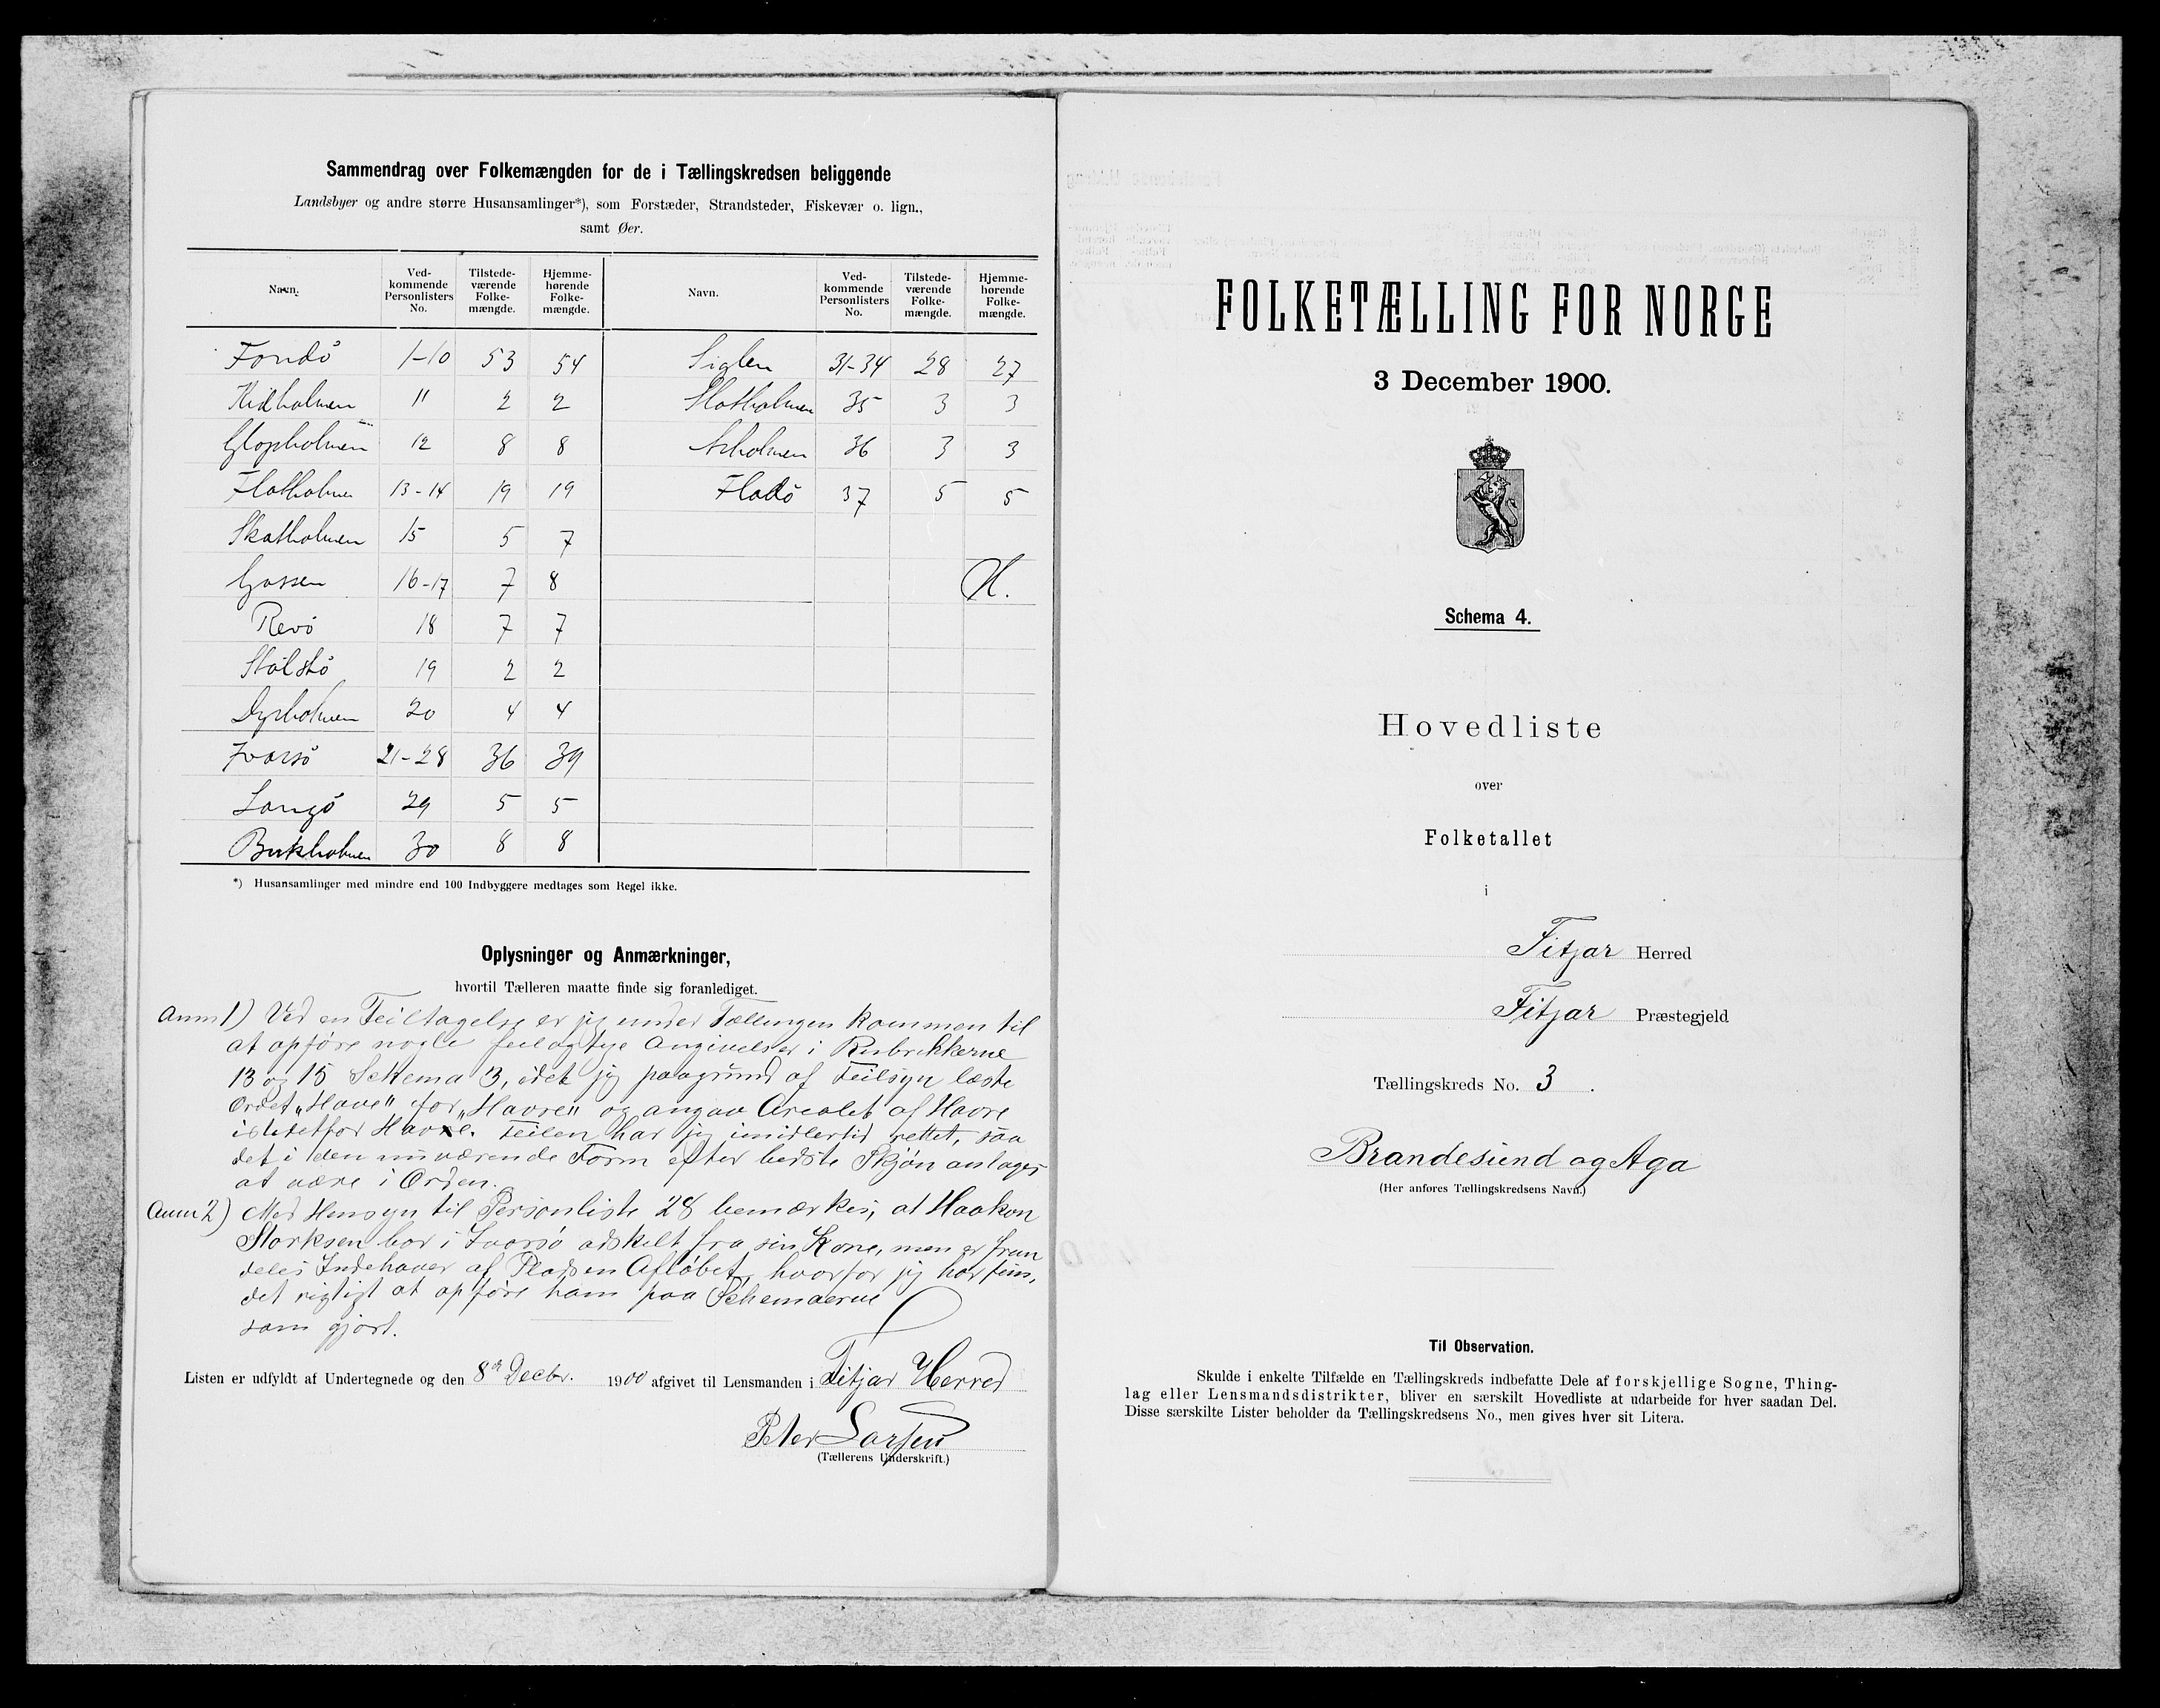 Sammendrag over Folkemængden for de i Tællingskredsen beliggende
Landsbyer og andre større Husansamlinger*), som Forstæder, Strandsteder, Fiskevær o. lign.,
samt Øer.
Navn. Ved-kommende Personlisters No. Tilstede-værende Folke-mængde. Hjemme-hørende Folke-mængde. Navn. Ved-kommende Personlisters No. Tilstede-værende Folke-mængde. Hjemme-hørende Folke-mængde.
Fondø 1-10 53 54 Siglen 31-34 28 27
Kidholmen 11 2 2 Slotholmen 35 3 3
Glopholmen 12 8 8 Axholmen 36 3 3
Flatholmen 13-14 19 19 Flodø 37 5 5
Skatholmen 15 5 7
Gossen 16-17 7 8 H.
Revø 18 7 7
Stolstø 19 2 2
Dyrholmen 20 4 4
Ivarsø 21-28 36 39
Langø 29 5 5
Bukholmen 30 8 8
*) Husansamlinger med mindre end 100 Indbyggere medtages som Regel ikke.
Oplysninger og Anmærkninger,
hvortil Tælleren maatte finde sig foranlediget.
Anm 1) Ved en Feiltagelse er jeg under Tællingen kommen til
at opføre nogle feilagtige Angivelser i Rubrikkerne
13 og 15 Schema 3, idet jeg paagrund af Feilsyn læste
Ordet „Have" for „Havre" og angav Arealet af Havre
istedetfor Have. Feilen har jeg imidlertid rettet, saa
det i den nuværende Form efter bedste Skjøn antages
at være i Orden.
Anm 2) Med Hensyn til Personliste 28 bemærkes, at Haakon
Storksen bor i Ivarsø adskilt fra sin Kone, men er frem
deles Indehaver af Pladsen Afløbet, hvorfor jeg har fun,
det rigtigt at opføre ham paa Schemaerne
som gjort.
Listen er udfyldt af Undertegnede og den 8de Decbr. 1900 afgivet til Lensmanden i Fitjar Herred
Peter Larsen
(Tællerens Underskrift.)
FOLKETÆLLING FOR NORGE
3 December 1900.
Schema 4.
Hovedliste
over
Folketallet
i
Fitjar Herred
Fitjar Præstegjeld
Tællingskreds No. 3.
Brandesund og Aga
(Her anføres Tællingskredsens Navn.)
Til Observation.
Skulde i enkelte Tilfælde en Tællingskreds indbefatte Dele af forskjellige Sogne, Thing-
lag eller Lensmandsdistrikter, bliver en særskilt Hovedliste at udarbeide for hver saadan Del.
Disse særskilte Lister beholder da Tællingskredsens No., men gives hver sit Litera.